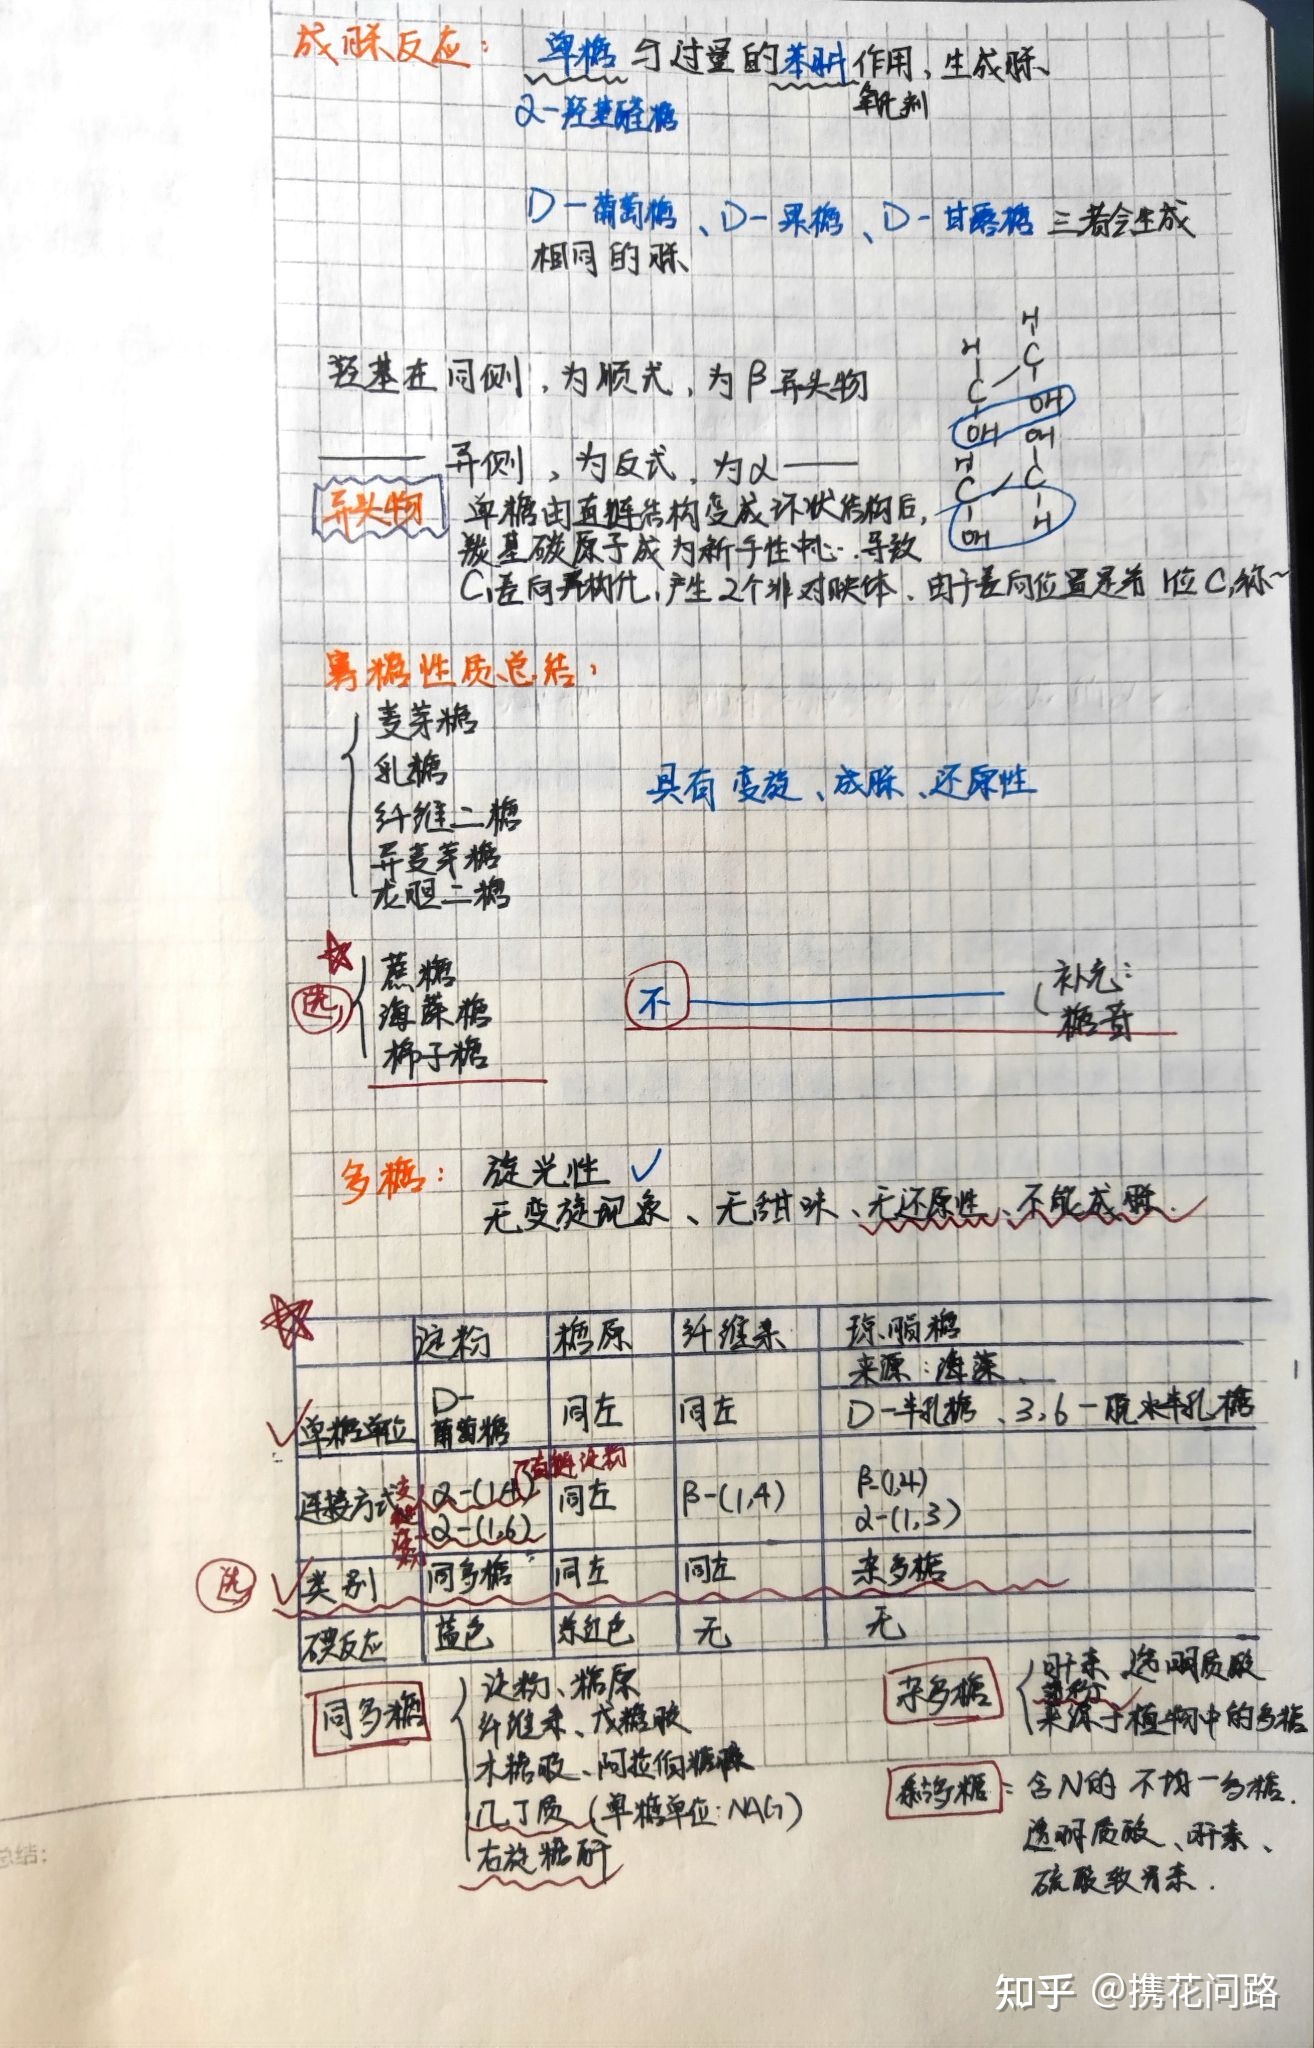 成脎反应: 单糖与过量的苯肼作用、生成脎、
α-羟基醛糖 氧化剂
D-葡萄糖、D-果糖、D-甘露糖 三者会生成
相同的脎
H
H C
羟基在同侧,为顺式,为β异头物 C OH
OH OH
异侧,为反式,为α
H C
C H
OH
异头物 单糖由直链结构变成环状结构后,
羰基碳原子成为新手性中心.导致
C₁差向异构化,产生2个非对映体、由于差向位置是者1位C,称~
寡糖性质总结:
麦芽糖
乳糖 具有变旋、成脎、还原性
纤维二糖
异麦芽糖
龙胆二糖
蔗糖 补充:
选 海藻糖 不 糖苷
棉子糖
多糖: 旋光性 ✓
无变旋现象、无甜味、无还原性、不能成脎.
淀粉 糖原 纤维素 琼脂糖
来源:海藻
单糖单位 D-葡萄糖 同左 同左 D-半乳糖、3,6-脱水半乳糖
直链淀粉
连接方式 支链淀粉 α-(1,4) 同左 β-(1,4) β-(1,4)
α-(1,6) α-(1,3)
选 ✓类别 同多糖 同左 同左 杂多糖
碘反应 蓝色 红色 无 无
同多糖 淀粉、糖原
纤维素、戊糖胶
木糖胶、阿拉伯糖胶
几丁质(单糖单位:NAG)
右旋糖酐
杂多糖 肝素、透明质酸
来源于植物中的多糖
黏多糖:含N的不均一多糖.
透明质酸、肝素、
硫酸软骨素.
总结:
知乎 @携花问路